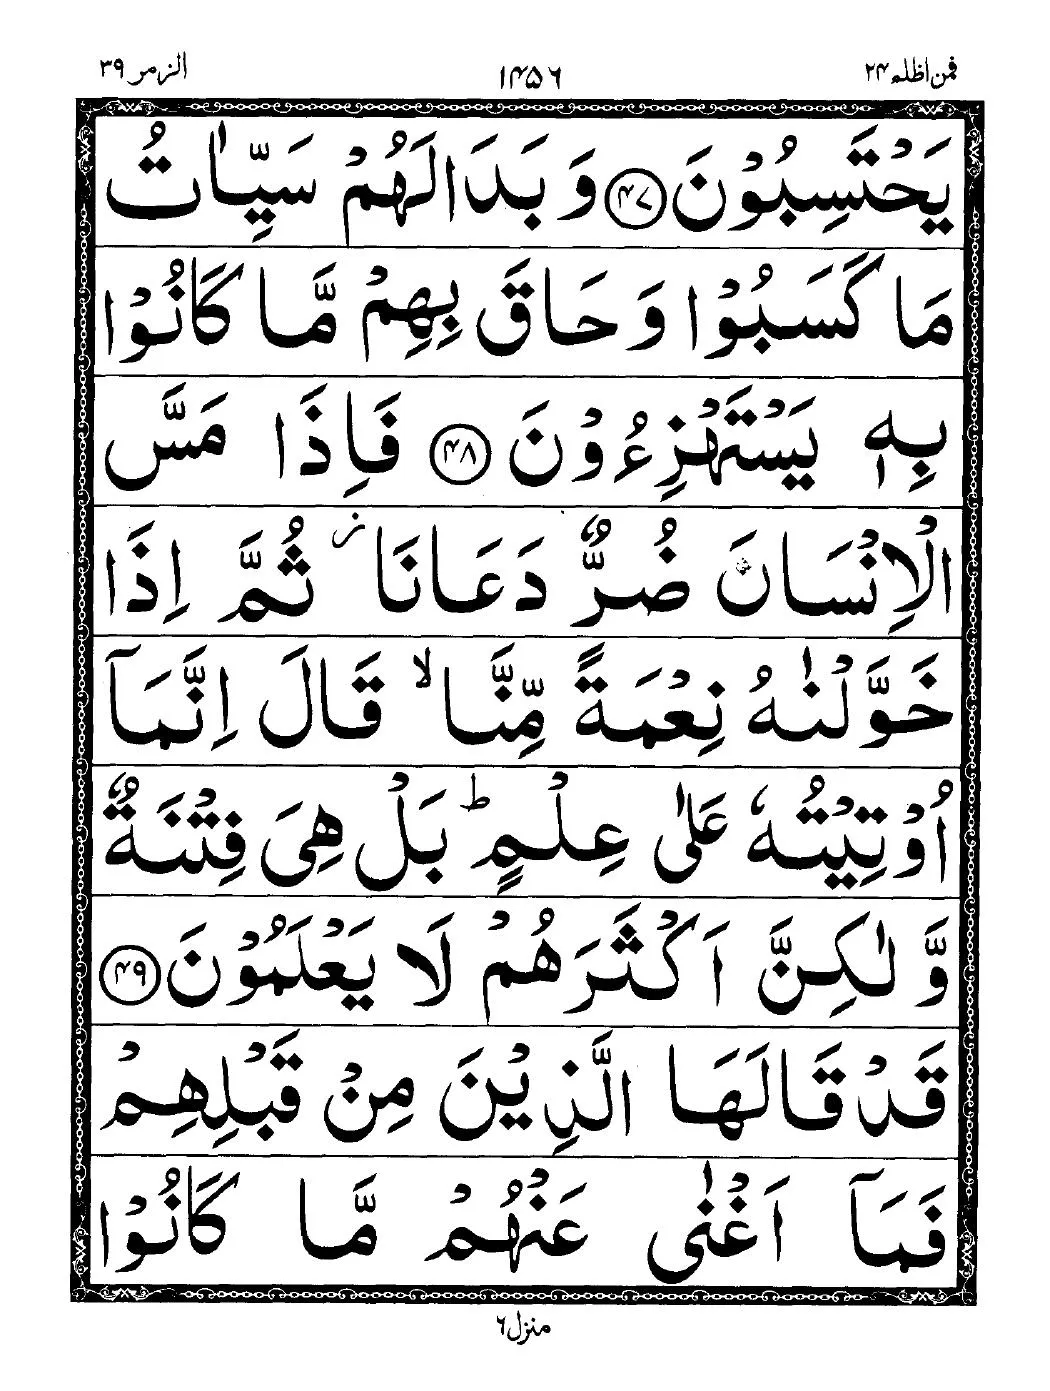 فمن اظلم ۲۴
۱۴۵۶
الزمر ۳۹
يَحْتَسِبُوْنَ ﴿۴۷﴾ وَ بَدَا لَهُمْ سَيِّاٰتُ
مَا كَسَبُوْا وَ حَاقَ بِهِمْ مَّا كَانُوْا
بِهٖ يَسْتَهْزِءُوْنَ ﴿۴۸﴾ فَاِذَا مَسَّ
الْاِنْسَانَ ضُرٌّ دَعَانَا ز ثُمَّ اِذَا
خَوَّلْنٰهُ نِعْمَةً مِّنَّا ۙ قَالَ اِنَّمَآ
اُوْتِيْتُهٗ عَلٰى عِلْمٍ ؕ بَلْ هِىَ فِتْنَةٌ
وَّلٰكِنَّ اَكْثَرَهُمْ لَا يَعْلَمُوْنَ ﴿۴۹﴾
قَدْ قَالَهَا الَّذِيْنَ مِنْ قَبْلِهِمْ
فَمَآ اَغْنٰى عَنْهُمْ مَّا كَانُوْا
منزل ۶